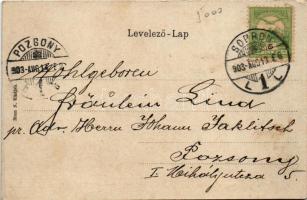 5000
Levelező-Lap
POZSONY
903 AUG 13
SOPRON
903 AUG 13
L 1 C
Wohlgeboren
Fräulein Lina
pr. Adr. Herrn Johann Jaklitsch
Pozsony
I Mihályutcza 5